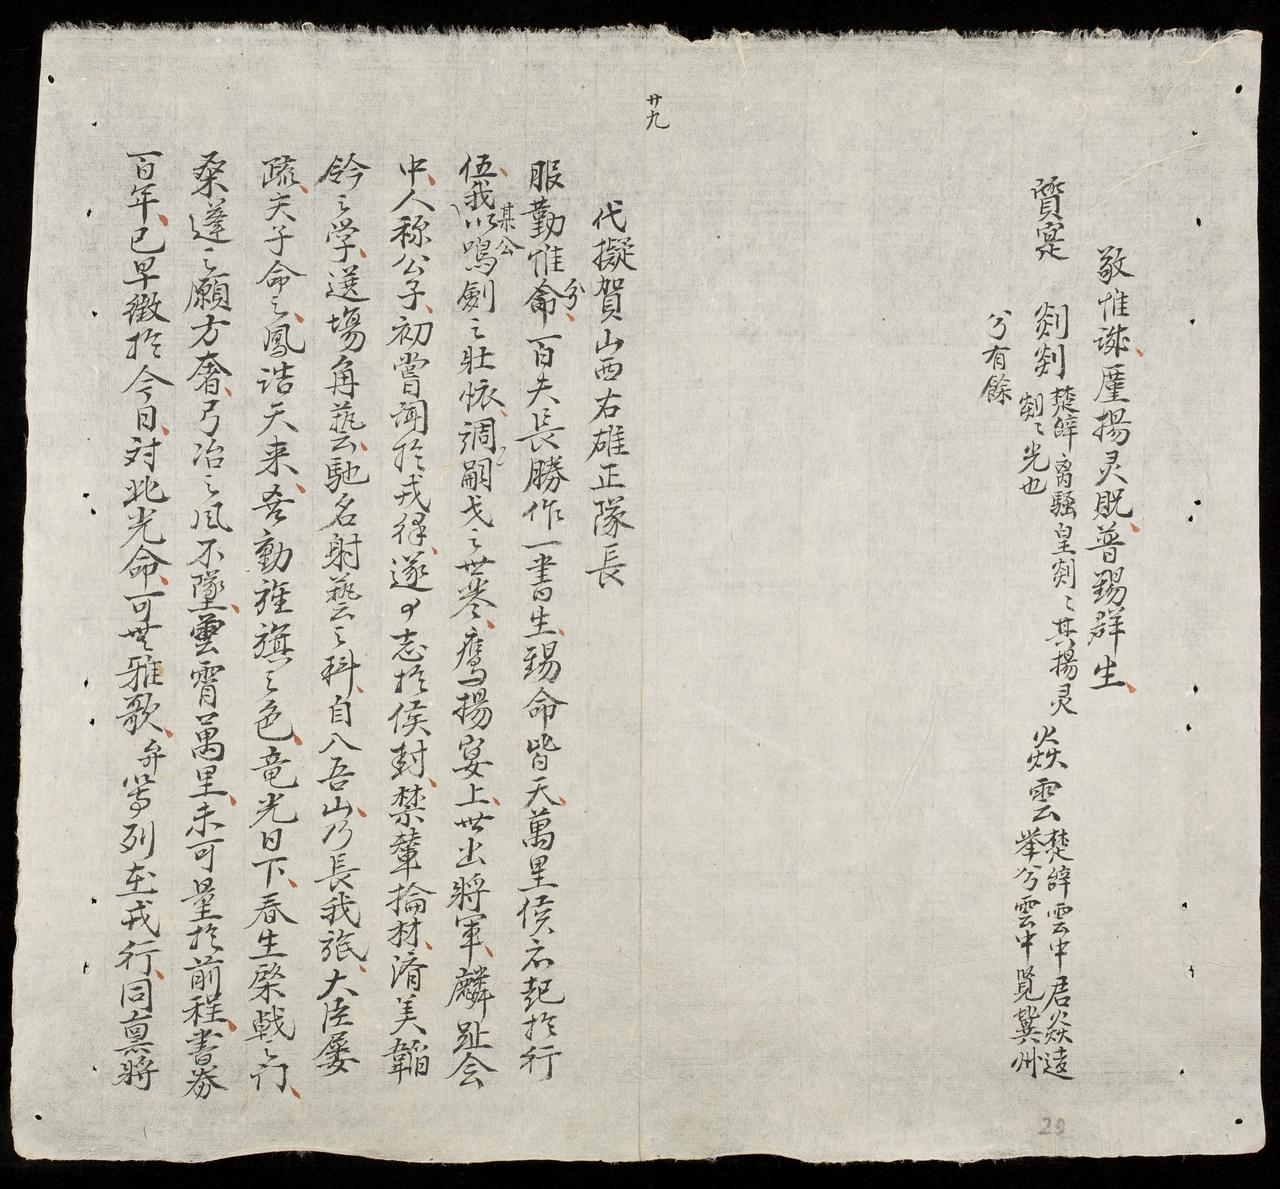 敬惟詸厘揚灵貺普錫群生
質寔 剡剡楚辞离騷皇剡〻其揚灵剡〻光也 焱雲楚辞雲中君焱遠举兮雲中覧冀州
兮有餘
廿九
代擬賀山西右雄正隊長
服勤惟侖分百夫長勝作一書生錫命皆天萬里侯亦起於行
伍我某公以鳴劍之壮懷調嗣戈之世卷鹰揚宴上世出將軍麟趾会
中人称公子初嘗聞於戎律遂志於侯封禁輦掄材済美韜
鈐之学选場角藝馳名射藝之科自入吾山乃長我旅大臣屡
疏天子命之鳳誥天来吾動旌旗之色竜光日下春生棨戟之门
桑蓬之願方奢弓冶之风不墜雲霄萬里未可量於前程書券
百年已早徴於今日対兆光命可無雅歌弁等列在戎行同禀將
29